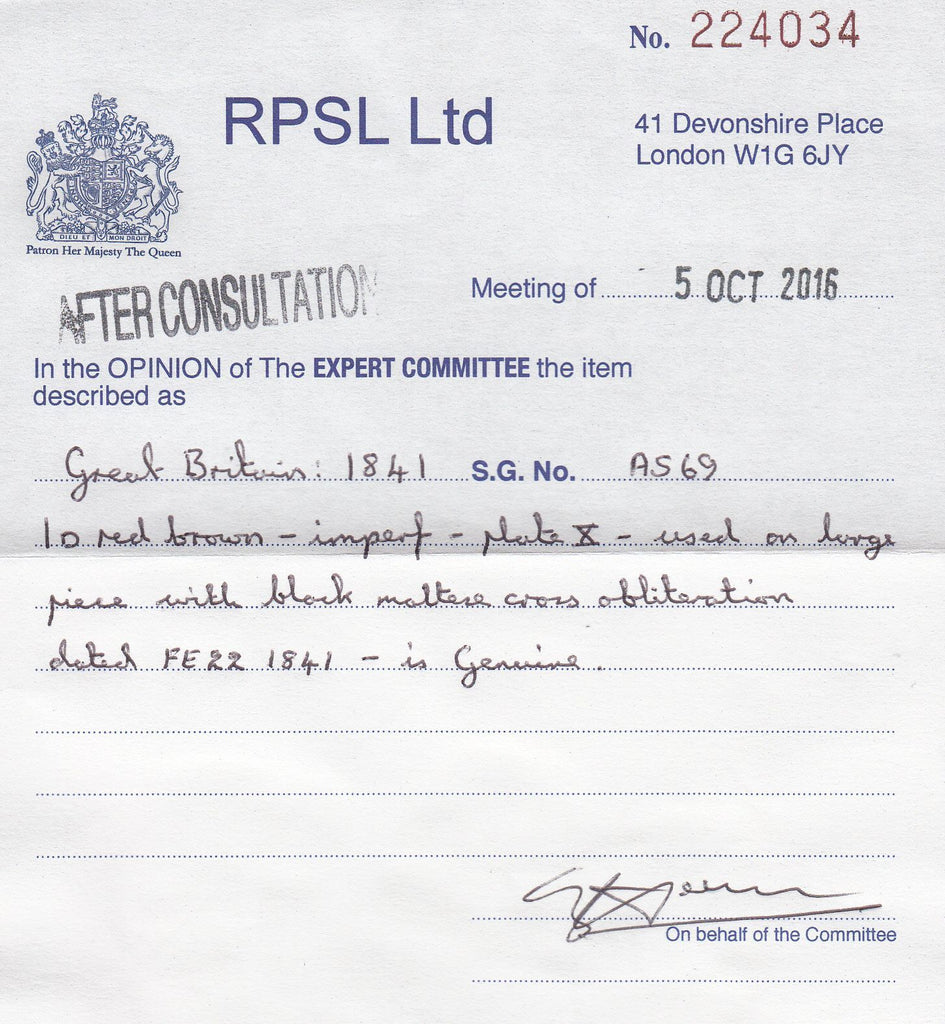 No. 224034
RPSL Ltd
41 Devonshire Place
London W1G 6JY
DIEU ET MON DROIT
Patron Her Majesty The Queen
AFTER CONSULTATION
Meeting of 5 OCT 2016
In the OPINION of The EXPERT COMMITTEE the item
described as
Great Britain: 1841 S.G. No. AS69
1D red brown - imperf - plate X - used on large
piece with black maltese cross obliteration
dated FE 22 1841 - is Genuine.
On behalf of the Committee